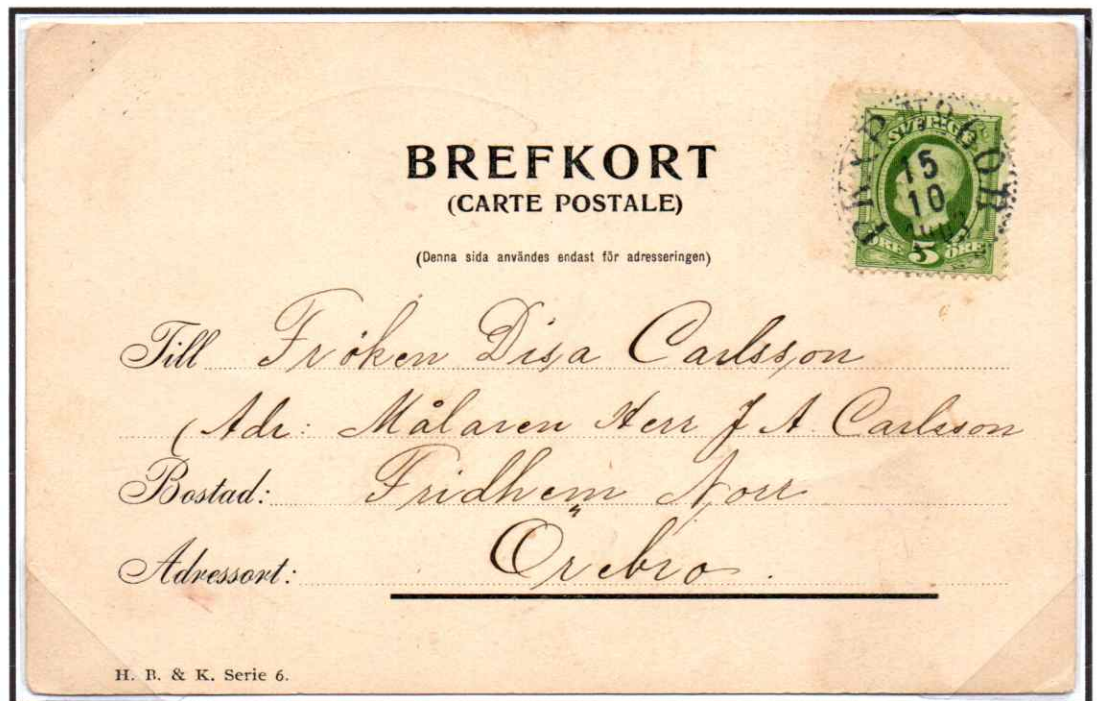 BREFKORT
(CARTE POSTALE)
(Denna sida användes endast för adresseringen)
SVERIGE
15
10
ÖRE 5 ÖRE
Till Fröken Disa Carlsson
(Adr: Målaren Herr J A. Carlsson
Bostad: Fridhem Norr
Adressort: Örebro.
H. B. & K. Serie 6.